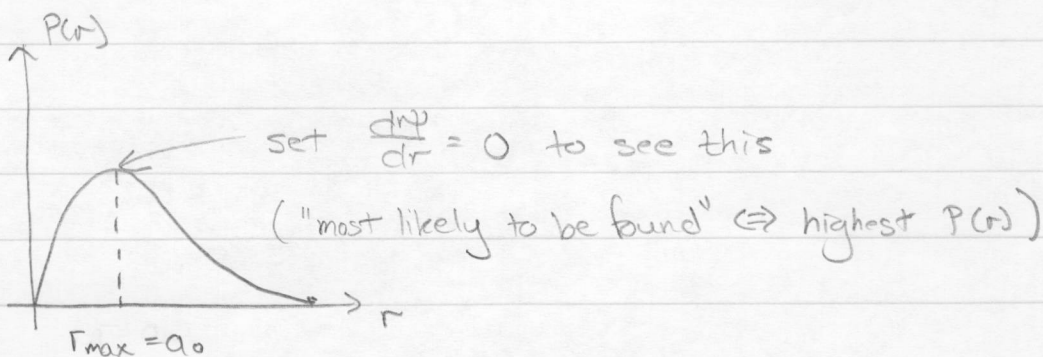 P(r)
set drψ/dr = 0 to see this
("most likely to be found" ⇔ highest P(r))
r
r max = a₀